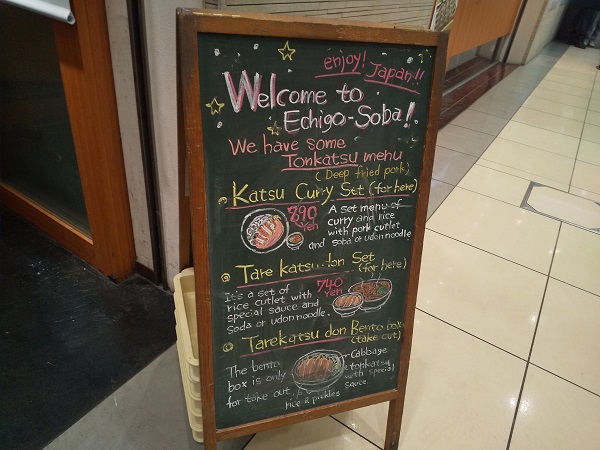 enjoy! Japan!!
Welcome to
Echigo-Soba!
We have some
Tonkatsu menu
(Deep fried pork)
Katsu Curry Set (for here)
890
Yen
A set menu of
curry and rice
with pork cutlet
and soba or udon noodle
Tare katsu don Set
(for here)
It's a set of
rice cutlet with
special sauce and
Soda or udon noodle.
740
Yen
Tarekatsu don Bento box
(take out)
The bento
box is only
for take out.
cabbage
tonkatsu
with special
sauce
rice & pickles